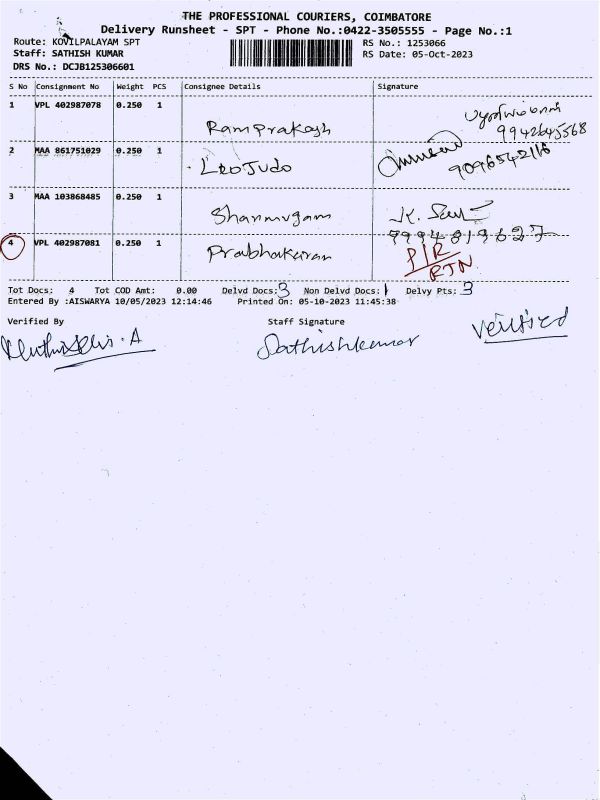 THE PROFESSIONAL COURIERS, COIMBATORE
Delivery Runsheet - SPT - Phone No.:0422-3505555 - Page No.:1
Route: KOVILPALAYAM SPT RS No.: 1253066
Staff: SATHISH KUMAR RS Date: 05-Oct-2023
DRS No.: DCJB125306601
S No Consignment No Weight PCS Consignee Details Signature
1 VPL 402987078 0.250 1
Ramprakash 9942645568
2 MAA 861751029 0.250 1
Leo Judo 9096542116
3 MAA 103868485 0.250 1
Shanmugam
9994819627
4 VPL 402987081 0.250 1
Prabhakaran P/R
RTN
Tot Docs: 4 Tot COD Amt: 0.00 Delvd Docs: 3 Non Delvd Docs: 1 Delvy Pts: 3
Entered By :AISWARYA 10/05/2023 12:14:46 Printed On: 05-10-2023 11:45:38
Verified By Staff Signature verified
Sathishkumar